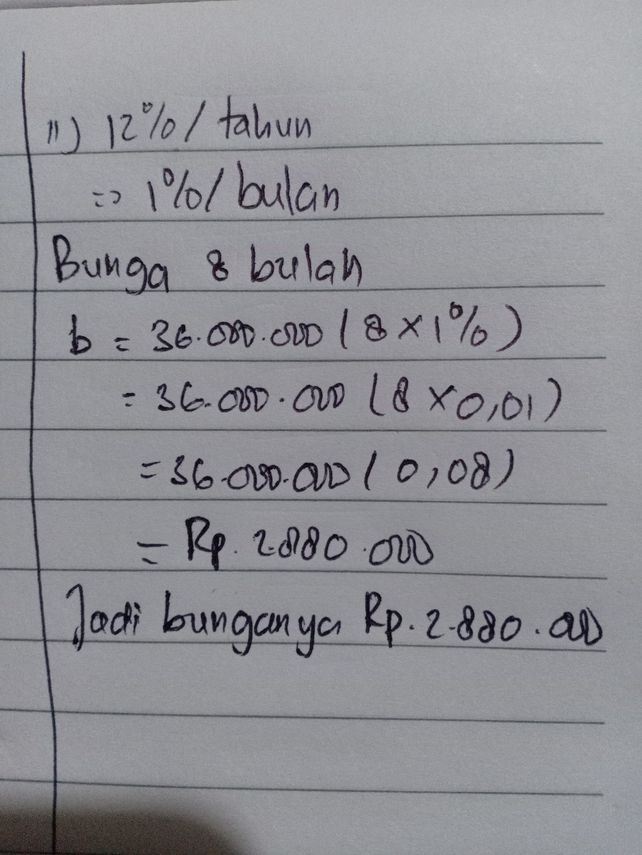 11) 12%/tahun
=> 1%/bulan
Bunga 8 bulan
b = 36.000.000 (8 × 1%)
= 36.000.000 (8 × 0,01)
= 36.000.000 (0,08)
= Rp. 2.880.000
Jadi bunganya Rp. 2.880.000